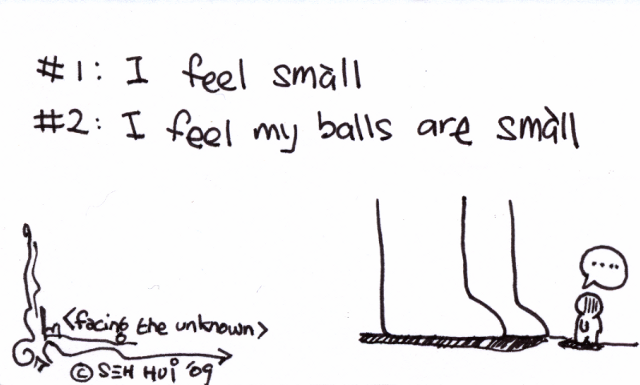 #1: I feel small
#2: I feel my balls are small
....
<facing the unknown>
© SEH HUI '09